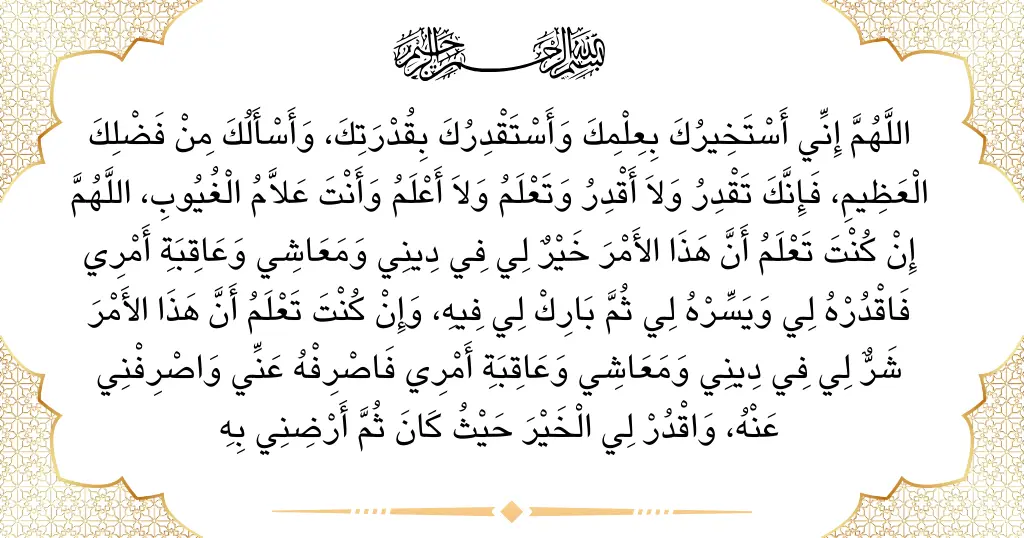 بسم الله الرحمن الرحيم
اللَّهُمَّ إِنِّي أَسْتَخِيرُكَ بِعِلْمِكَ وَأَسْتَقْدِرُكَ بِقُدْرَتِكَ، وَأَسْأَلُكَ مِنْ فَضْلِكَ
الْعَظِيمِ، فَإِنَّكَ تَقْدِرُ وَلاَ أَقْدِرُ وَتَعْلَمُ وَلاَ أَعْلَمُ وَأَنْتَ عَلاَّمُ الْغُيُوبِ، اللَّهُمَّ
إِنْ كُنْتَ تَعْلَمُ أَنَّ هَذَا الأَمْرَ خَيْرٌ لِي فِي دِينِي وَمَعَاشِي وَعَاقِبَةِ أَمْرِي
فَاقْدُرْهُ لِي وَيَسِّرْهُ لِي ثُمَّ بَارِكْ لِي فِيهِ، وَإِنْ كُنْتَ تَعْلَمُ أَنَّ هَذَا الأَمْرَ
شَرٌّ لِي فِي دِينِي وَمَعَاشِي وَعَاقِبَةِ أَمْرِي فَاصْرِفْهُ عَنِّي وَاصْرِفْنِي
عَنْهُ، وَاقْدُرْ لِي الْخَيْرَ حَيْثُ كَانَ ثُمَّ أَرْضِنِي بِهِ